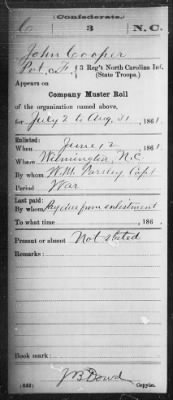 Confederate.
C 3 N.C.
John Cooper
Pvt, Co. F, 3 Reg't North Carolina Inf.
(State Troops.)
Appears on
Company Muster Roll
of the organization named above,
for July 2 to Aug 31, 1861.
Enlisted:
When June 12, 1861
Where Wilmington, N.C.
By whom W.M. Parsley Capt
Period War
Last paid:
By whom Pay due from enlistment
To what time , 186 .
Present or absent Not stated
Remarks:
Book mark:
J B Dowd
Copyist.